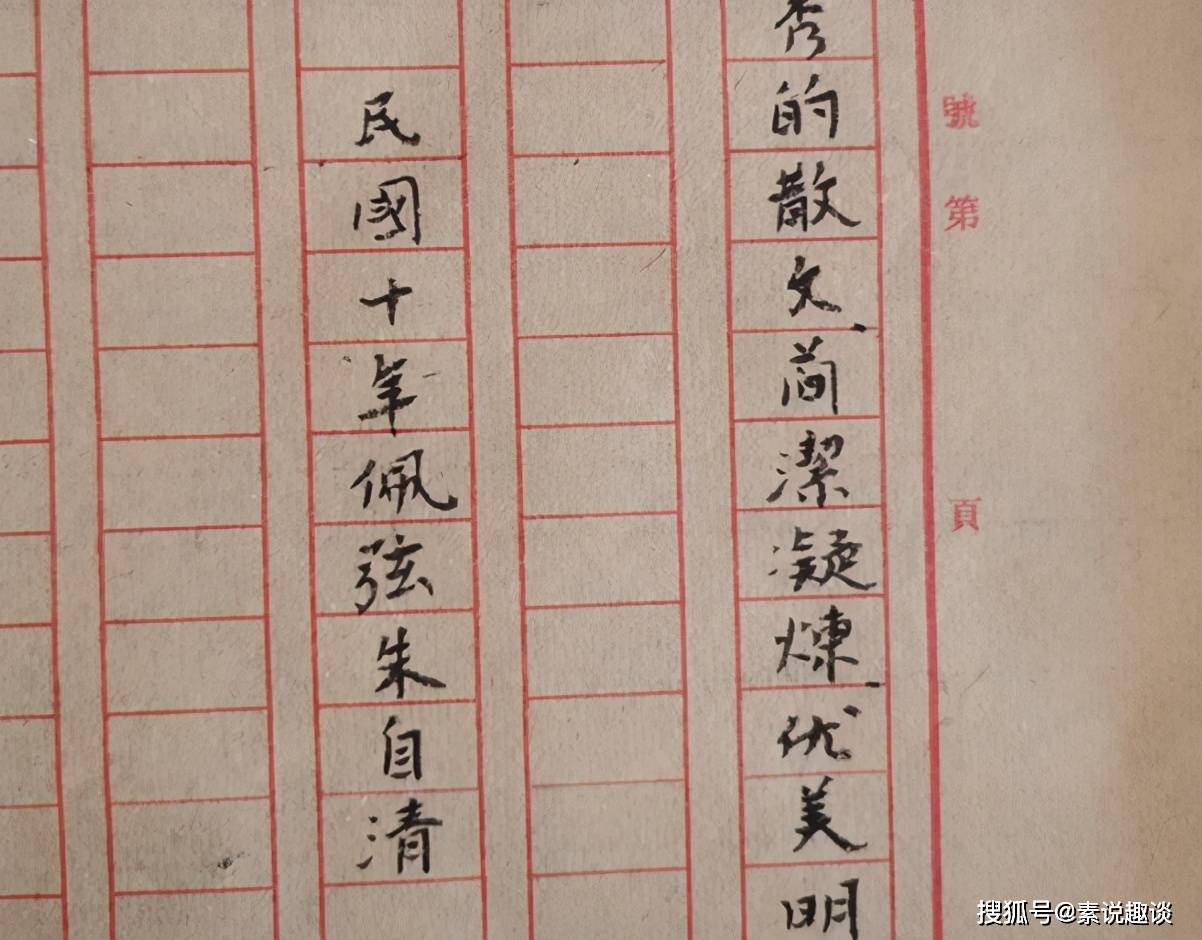 號第 頁
秀的散文、简潔凝煉、优美明
民國十年佩弦朱自清
搜狐号@素说趣谈